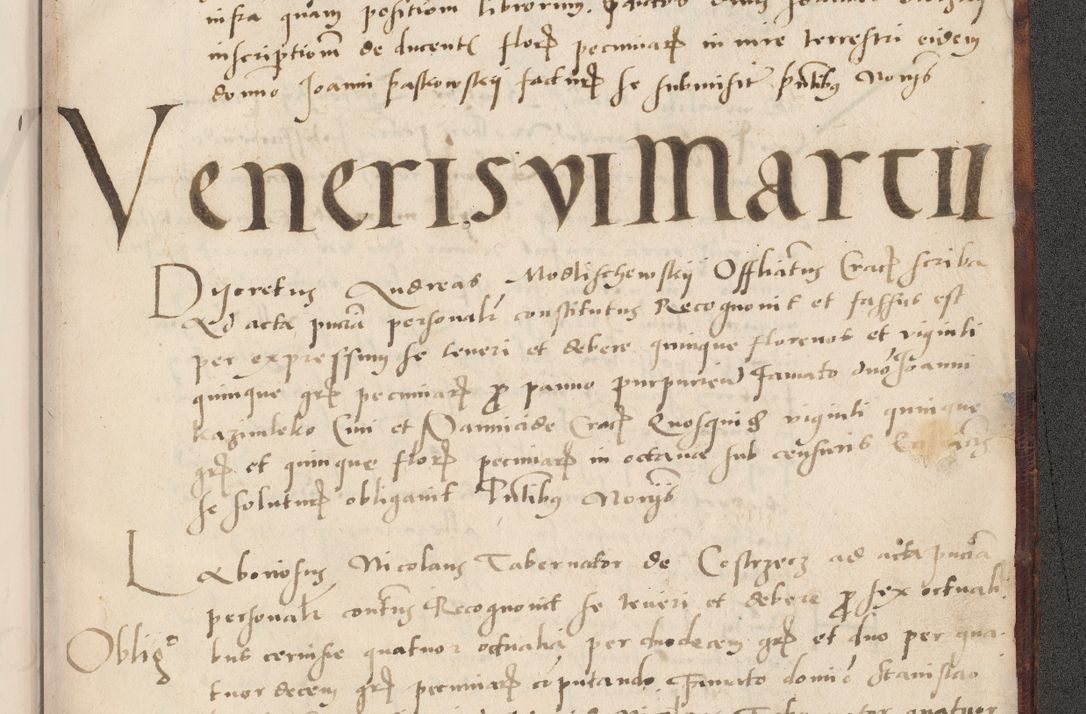 infra quam positiom librorum.
inscriptionẽ de ducentĩ florꝝ pecuniarꝝ in iure terrestri eidem
domino Ioanni paskowskij facturꝝ se submisit pñtibus Nonijs
Veneris vi Martii
Discretus Andreas Modlischewskij Officiatus Cracꝝ scriba
Ad acta pñcia personalr constitutus Recognouit et fassus est
per expressum se teneri et debere quinque florenos et viginti
quinque grꝝ pecuniarꝝ pro panno purpureo Famato dno Ioanni
kazimleko Ciui et Pannicide Cracꝝ Quosquid viginti quinque
grꝝ et quinque florꝝ pecuniarꝝ in octaua sub censuris
se soluturꝝ obligauit Pñtibus Nonijs
Laboriosus Nicolaus Tabernator de Costrzecz ad acta pñcia
personalr contus Recognouit se teneri et debere pro sex octuali
Obligo
bus ceruisie quatuor octualia per duodecem grꝝ et duo per qua-
tuordecem grꝝ pecuniarꝝ cõputando Famato domino Stanislao
quatuor